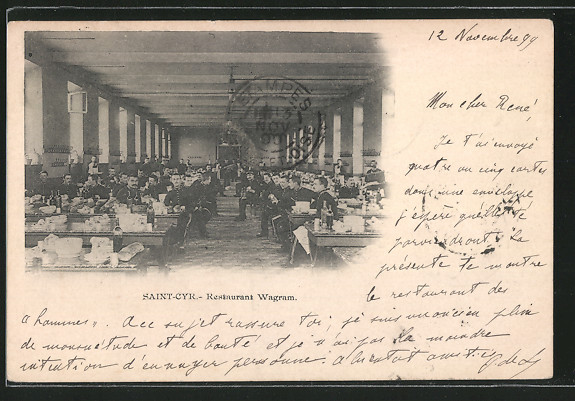 12 Novembre 99
Mon cher René,
Je t'ai envoyé
quatre ou cinq cartes
dans une enveloppe
j'espère qu'elles te
parviendront. La
présente te montre
le restaurant des
"hommes". A ce sujet rassure toi, je suis un ancien plein
de mansuétude et de bonté et je n'ai pas la moindre
intention d'ennuyer personne. A bientôt amitiés
ETAMPES
SAINT-CYR. - Restaurant Wagram.